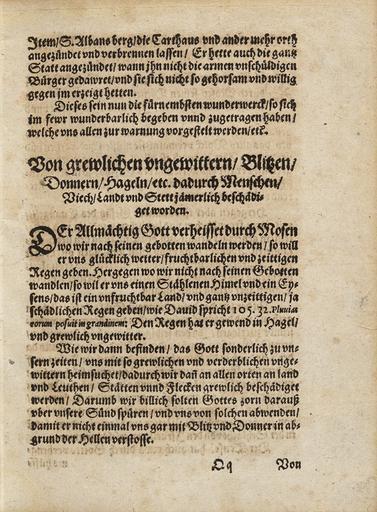 Item/ S. Albans berg/ die Carthaus vnd ander mehr orth
angezündet vnd verbrennen lassen/ Er hette auch die gantz
Statt angezündet/ wann jhn nicht die armen vnschüldigen
Bürger gedawret/ vnd sie sich nicht so gehorsam vnd willig
gegen jm erzeigt hetten.
Dieses sein nun die fürnembsten wunderwerck/ so sich
im fewr wunderbarlich begeben vnnd zugetragen haben/
welche vns allen zur warnung vorgestelt werden/ etc.
Von grewlichen vngewittern/ Blitzen/
Donnern/ Hageln/ etc. dadurch Menschen/
Viech/ Landt vnd Stett jämerlich beschädi-
get worden.
DEr Allmächtig Gott verheisset durch Mosen
wo wir nach seinen gebotten wandeln werden/ so will
er vns glücklich wetter/ fruchtbarlichen vnd zeittigen
Regen geben. Hergegen wo wir nicht nach seinen Gebotten
wandlen/ so wil er vns einen Stählenen Himel vnd ein Ey-
sens/ das ist ein vnfruchtbar Land/ vnd gantz vnzittigen/ ja
schädlichen Regen geben/ wie Dauid spricht 105. 32. Pluuias
eorum posuit in grandinem; Den Regen hat er gewend in Hagel/
vnd grewlich vngewitter.
Wie wir dann befinden/ das Gott sonderlich zu vn-
sern zeiten/ vns mit so grewlichen vnd verderblichen vnge-
wittern heimsuchet/ dadurch wir dañ an allen orten an land
vnd Leuthen/ Stätten vnnd Flecken grewlich beschädiget
werden/ Darumb wir billich solten Gottes zorn darauß
vber vnsere Sünd spüren/ vnd vns von solchen abwenden/
damit er nicht einmal vns gar mit Blitz vnd Donner in ab-
grund der Hellen verstosse.
Qq Von